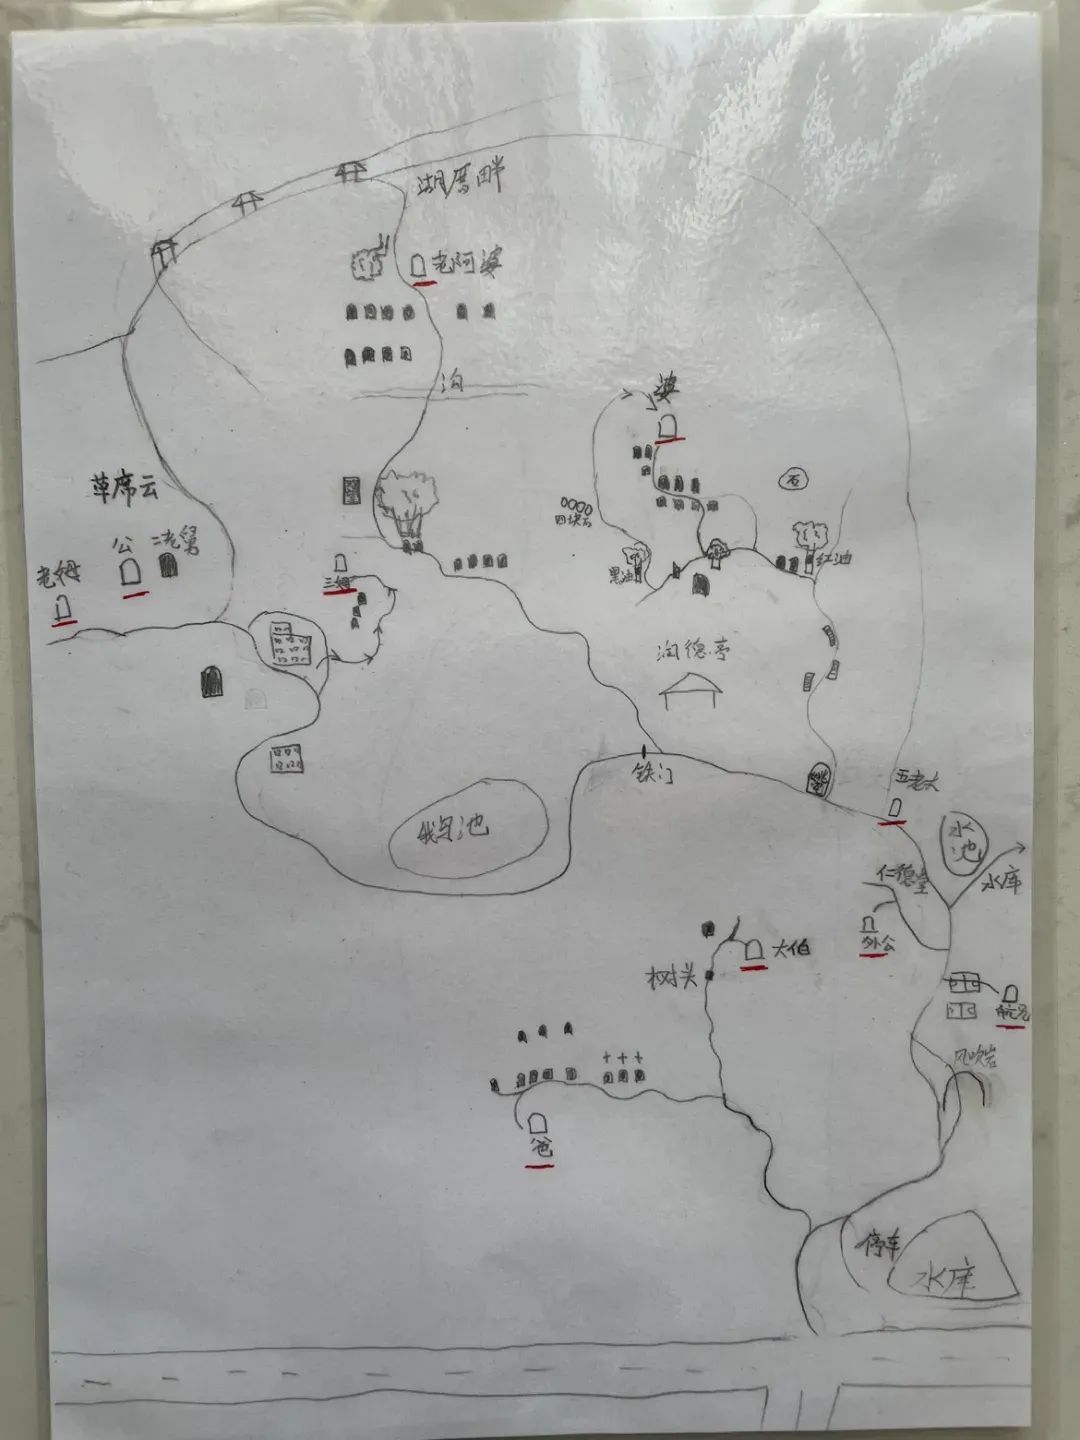 湖厝畔
老阿婆
沟
婆
石
草席云
四块石
公
二老舅
红油
黑油
老姆
三姆
润德亭
铁门
五老大
鹅池
水池
仁德堂
水库
外公
大伯
树头
航兄
风吹岩
爸
停车
水库